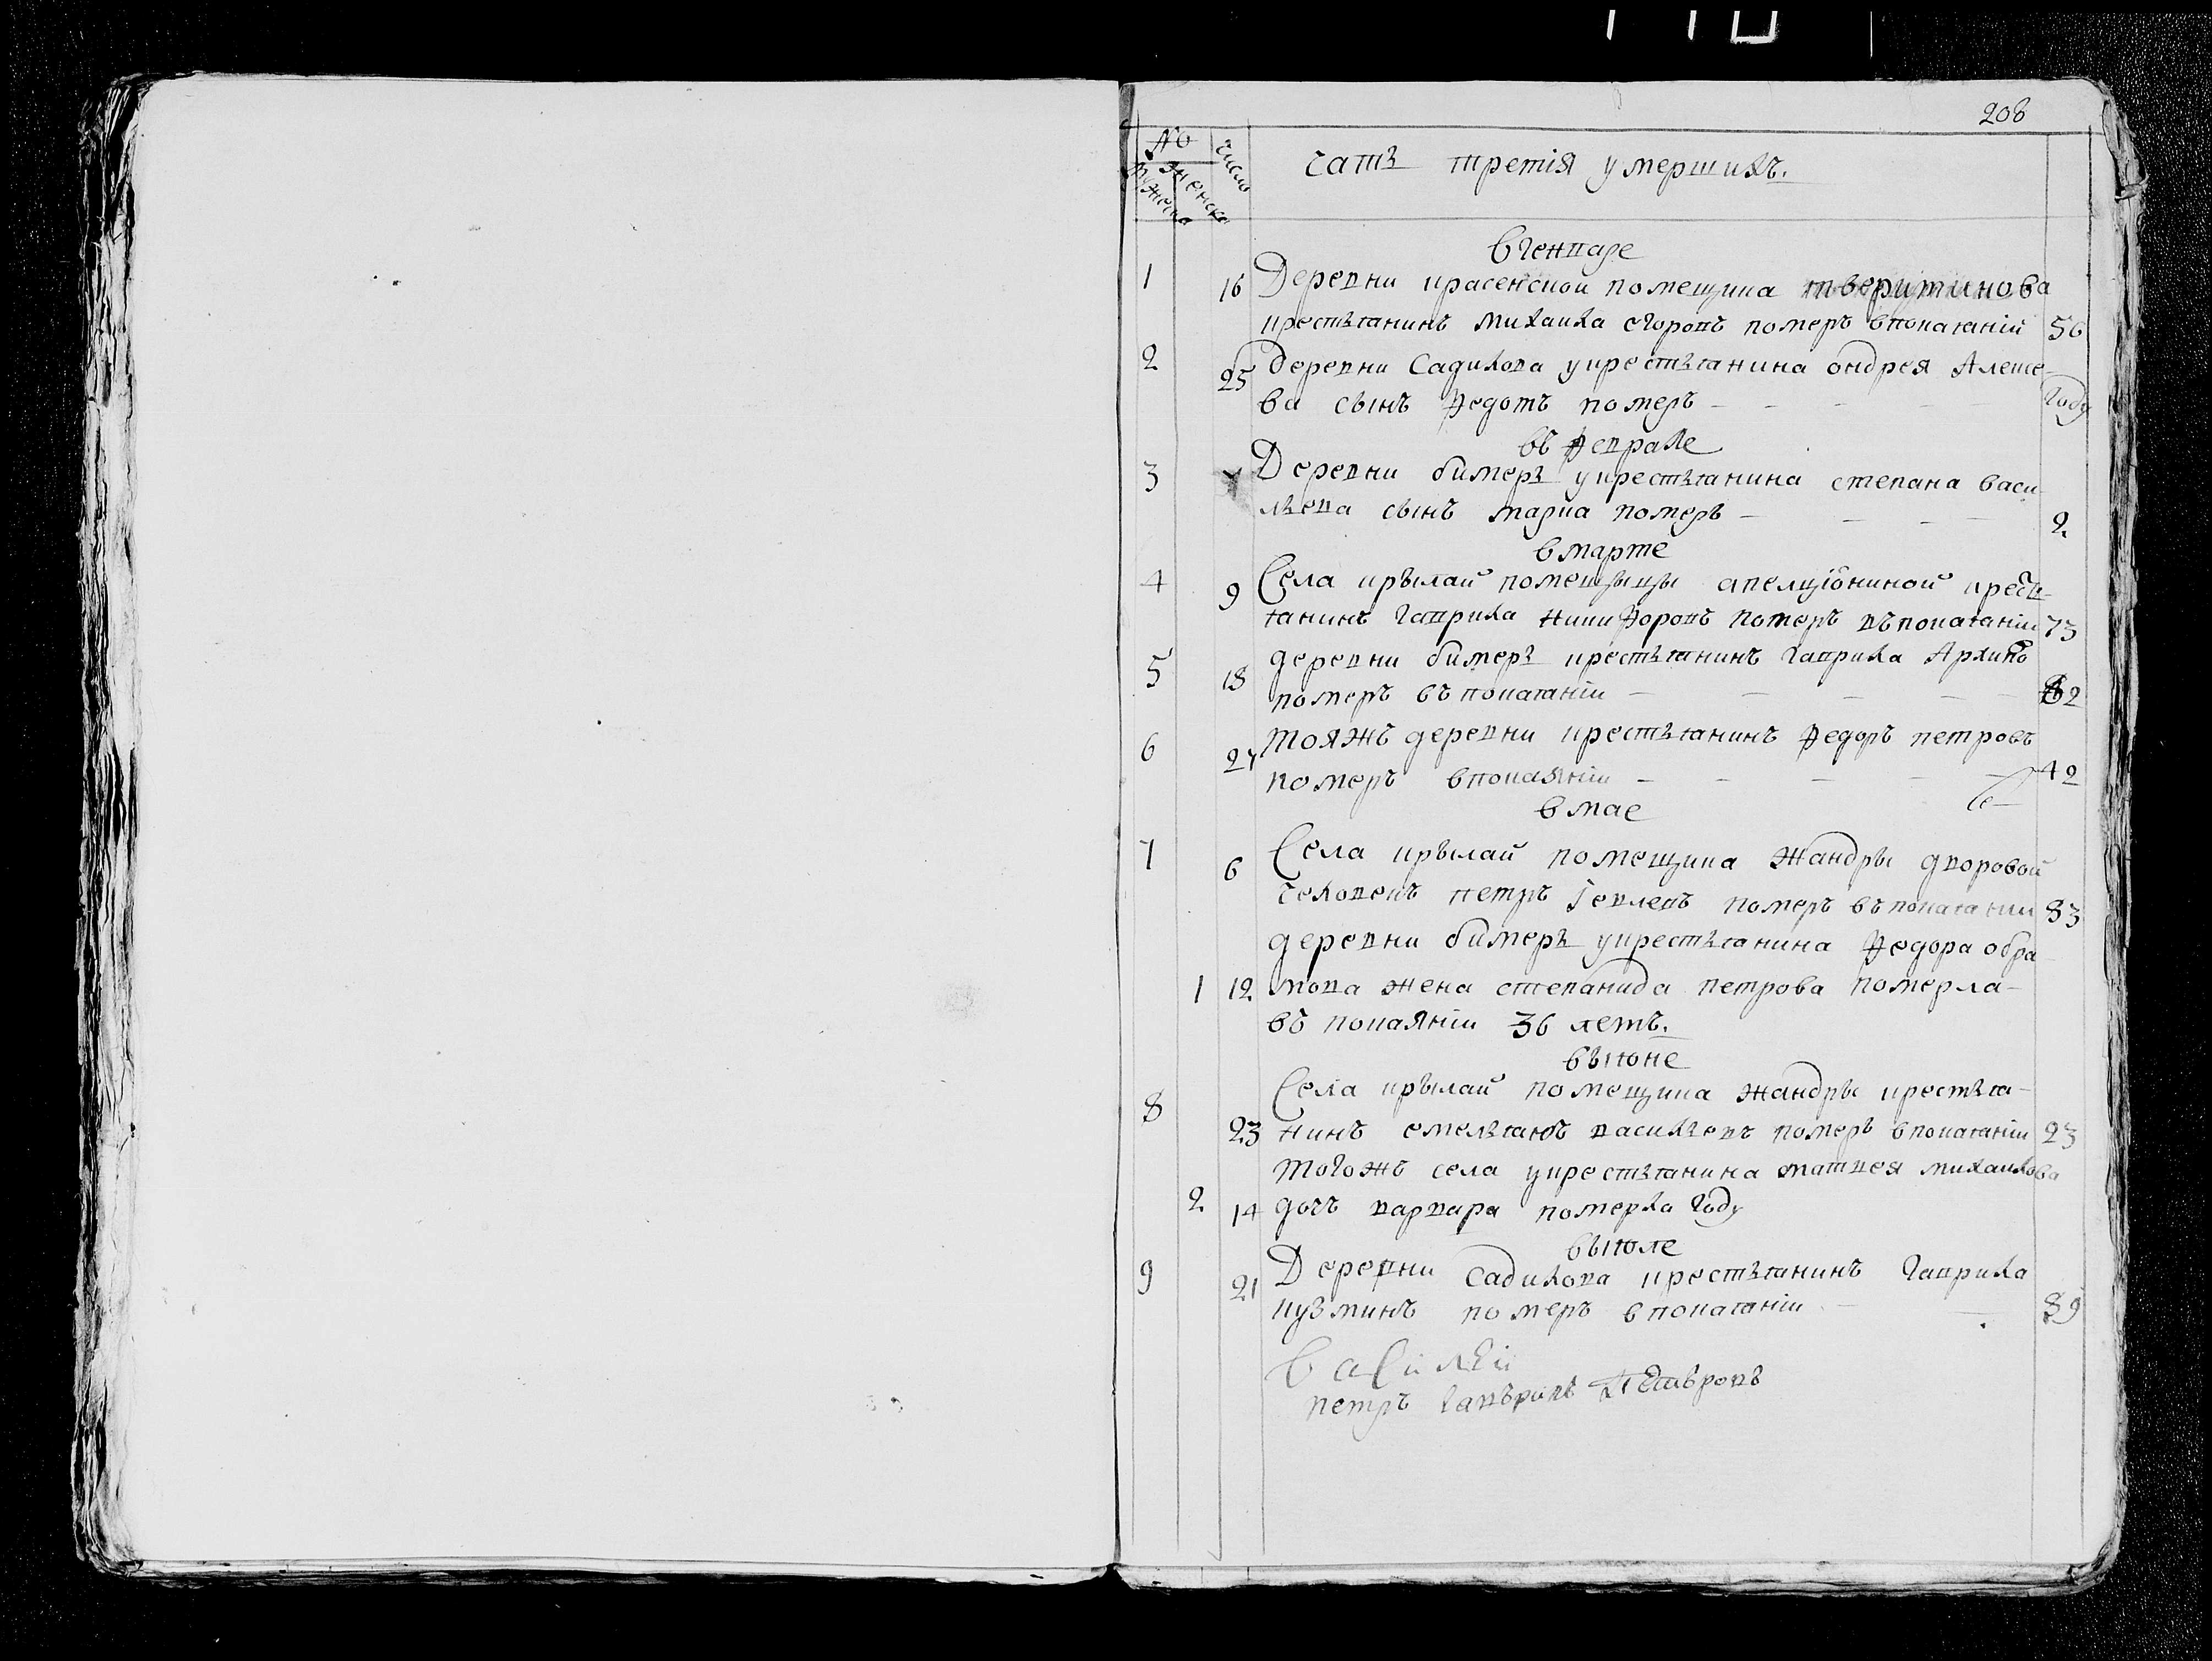 208
№
мужеска
женска
число
часть третія умершихъ.
в генваре
1 16 Деревни красенской помещика тверитинова
крестьянинъ михаила егоровъ померъ впокаяніи 56
2 25 деревни Садикова у крестьянина ондрея Алексе-
ва сынъ федотъ померъ году
въ феврале
3 Деревни бимерь у крестьянина степана васи
льева сынъ марка померъ 2
в марте
4 9 Села крылай помещицы апелціониной кресть-
янинъ гаврила никифоровъ померъ въ покаяніи 73
5 18 деревни бимерь крестьянинъ гаврила Архипо
померъ въ покаяніи 62
6 27 тояжъ деревни крестьянинъ федоръ петровъ
померъ впокаяніи 42
в мае
7 6 Села крылай помещика жандры дворовой
человекъ петръ Іевлевъ померъ въ покаянии 83
деревни бимерь у крестьянина федора обра
1 12 мова жена степанида петрова померла
въ покаяніи 36 летъ.
въ июне
8 Села крылай помещика жандры крестья-
23 нинъ емельянъ васильевъ померъ впокаяніи 23
тогожъ села у крестьянина матвея михаилова
2 14 дочь варвара померла году
въ июле
9 21 Деревни садикова крестьянинъ гаврила
кузминъ померъ впокаяніи 89
Василѣй
петръ гавъриль